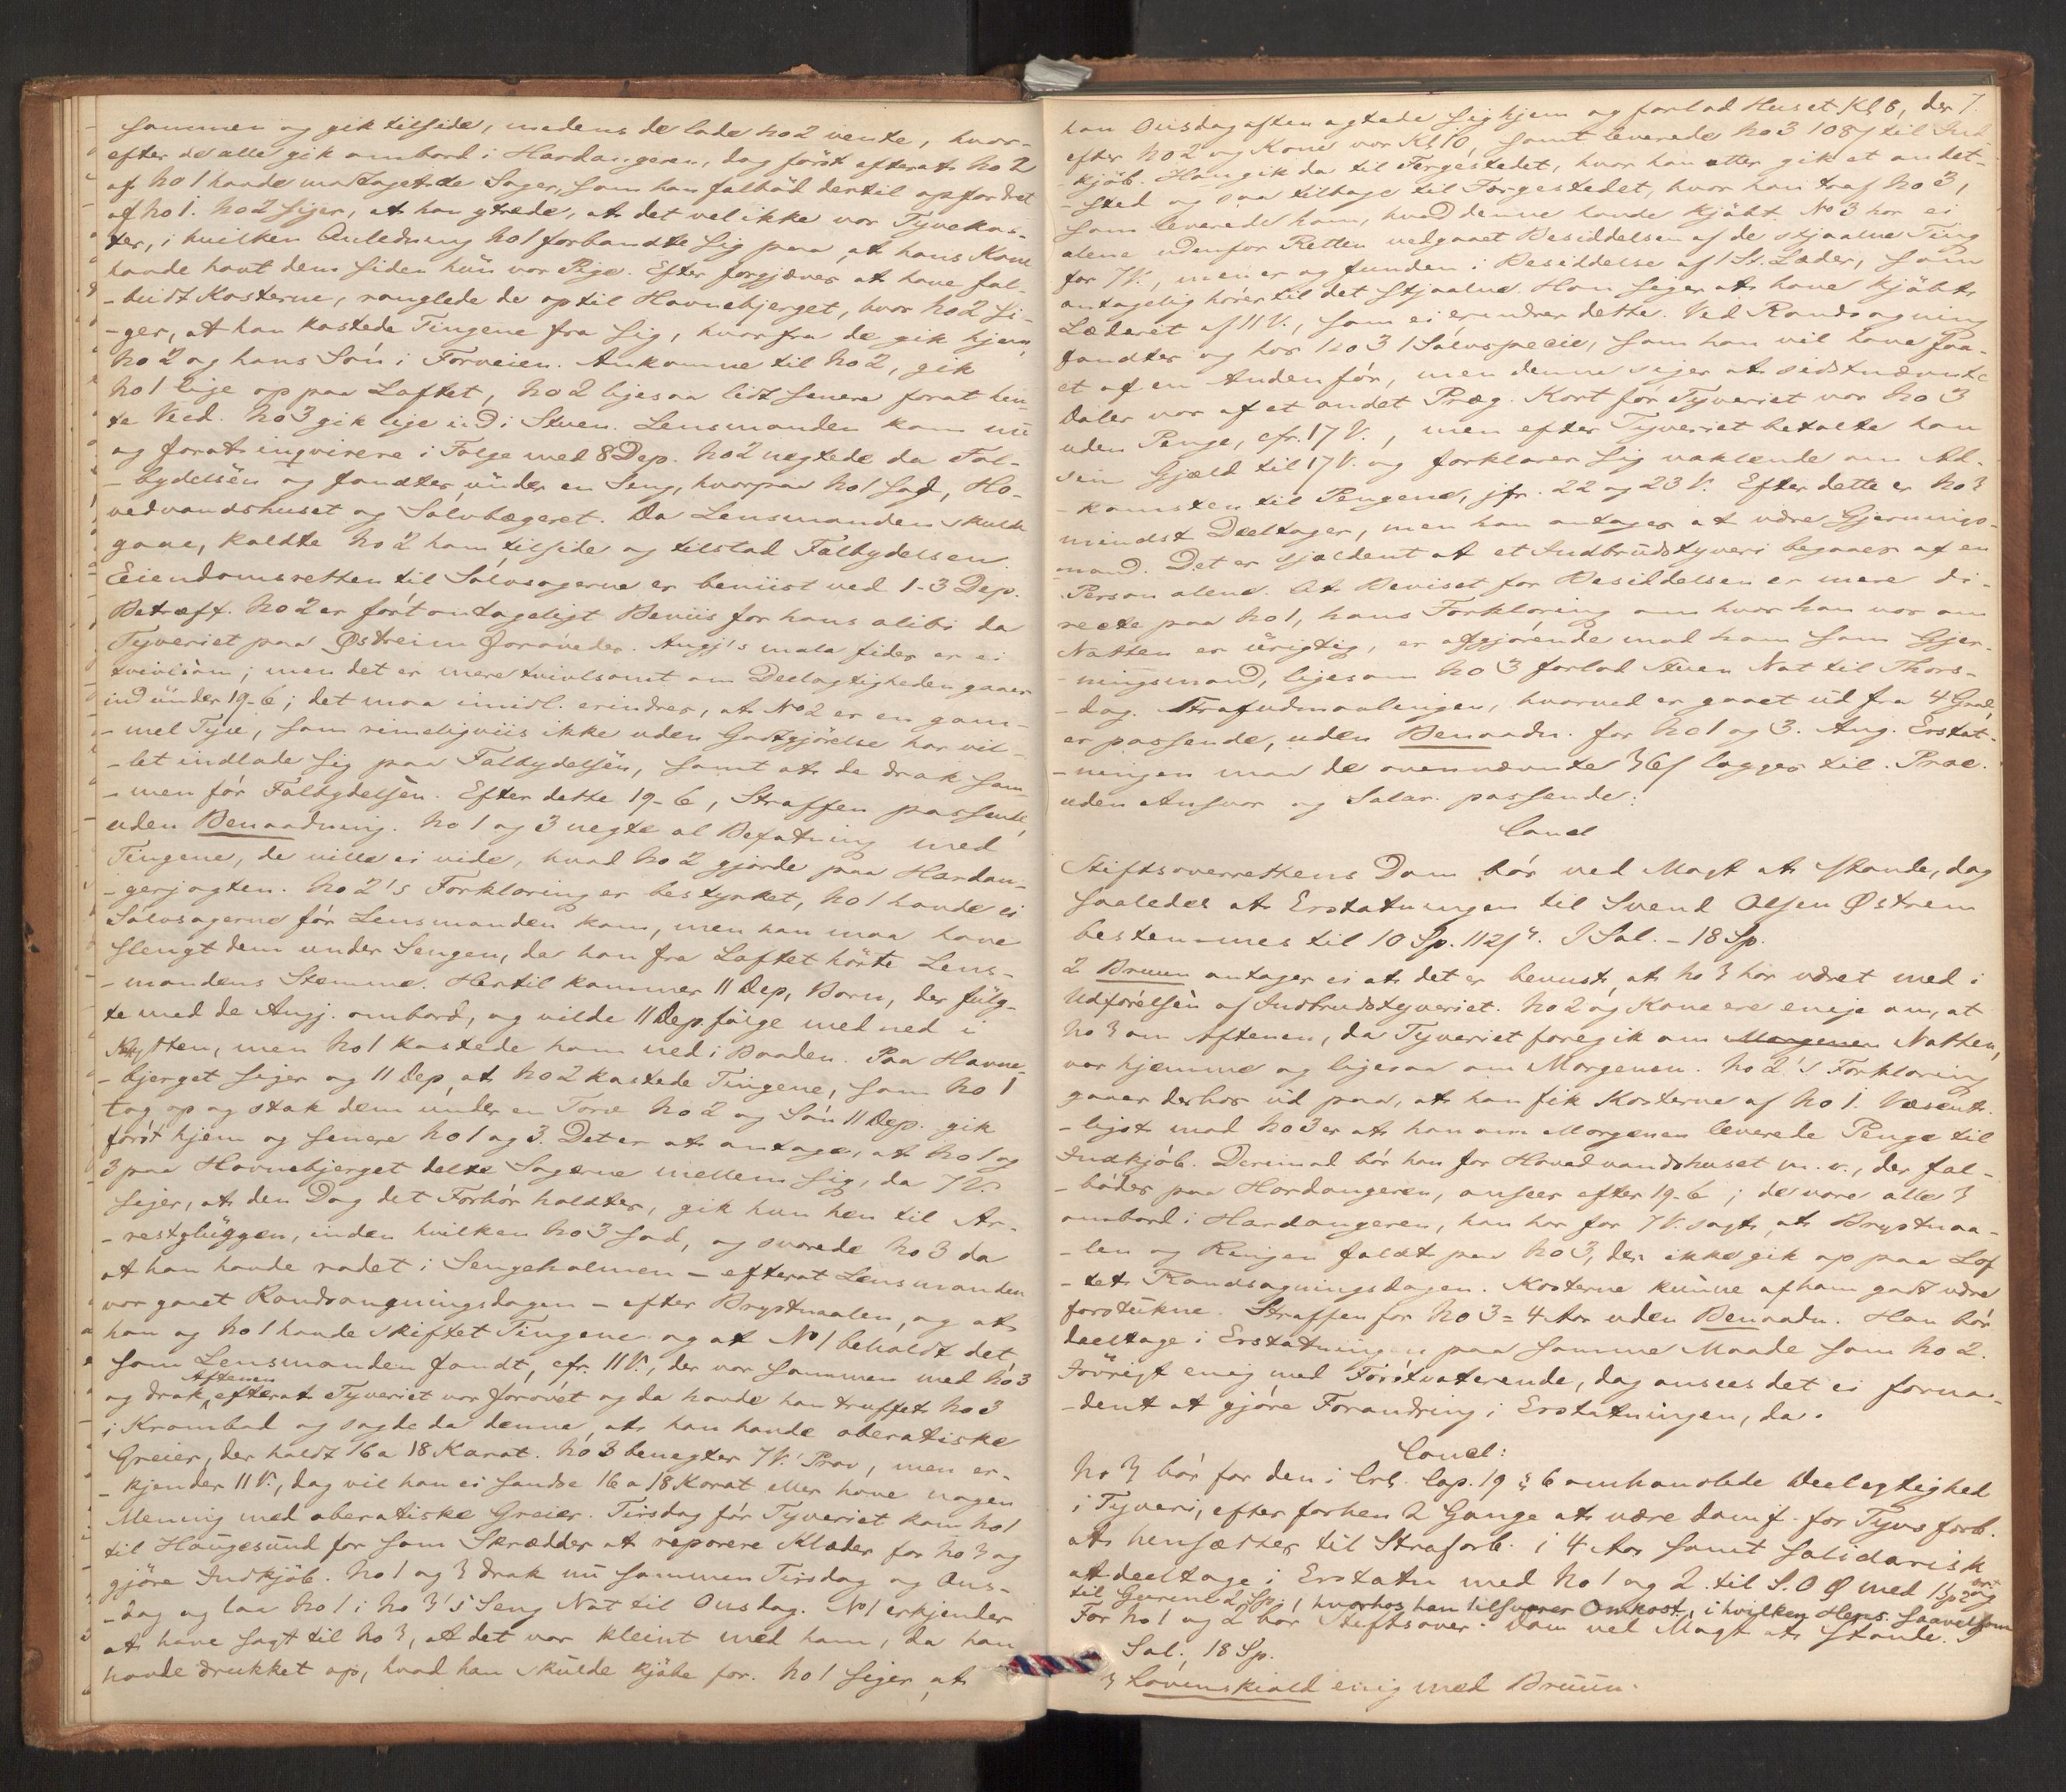 sammen og gik tilside, medens de lade No 2 vente, hvor-
efter de alle gik ombord i Hardangeren, dog först efterat No 2
af No 1 havde modtaget de Sager, som han falböd dertil opfordret
af No 1. No 2 siger, at han ytrede, at det vel ikke var Tyvekos-
ter, i hvilken Anledning No 1 forbandte sig paa, at hans Kone
havde havt dem siden hun var Pige. Efter forgjæves at have fal-
-budt Kosterne, ranglede de op til Havnebjerget, hvor No 2 si-
-ger, at han kastede Tingene fra sig, hvorfra de gik hjem,
No 2 og hans Sön i Forveien. Ankomne til No 2, gik
No 1 lige op paa Loftet, No 2 ligesaa lidt senere forat hen-
te Ved. No 3 gik lige ind i Stuen. Lensmanden kom nu
og forat inqvirere i Følge med 8 Dep. No 2 negtede da Fal-
-bydelsen og fandtes under en Seng, hvorpaa No 1 sad, Ho-
vedvandshuset og Sølvbægeret. Da Lensmanden skulde
gaae, kaldte No 2 ham tilside og tilstod Falbydelsen.
Eiendomsretten til Sölvsagerne er beviist ved 1-3 Dep.
Betræff. No 2 er ført antageligt Beviis for hans alibi da
Tyveriet paa Østreim forövedes. Angj's mala fides er ei
tvivlsom; men det er mere tvivlsomt om Deelagtigheden gaaer
ind under 19-6; det maa imidl. erindres, at No 2 er en gam-
-mel Tyv, som rimeligviis ikke uden Godtgjörelse har vil-
-let indlade sig paa Falbydelsen, samt at de drak sam-
-men för Falbydelsen. Efter dette 19-6, Straffen passende,
uden Benaadning. No 1 og 3 negte al Befatning med
Tingene, de ville ei vide, hvad No 2 gjorde paa Hardan-
-gerjagten. No 2's Forklaring er bestyrket, No 1 havde ei
Sölvsagerne för Lensmanden kom, men han maa have
slengt dem under Sengen, da han fra Loftet hörte Lens-
-mandens Stemme. Hertil kommer 11 Dep, Barn, der fulg-
te med de Angj. ombord, og vilde 11 Dep. følge med ned i
Kahytten, men No 1 kastede ham ned i Baaden. Paa Havne-
-bjerget siger og 11 Dep. at No 2 kastede Tingene, som No 1
tog op og stak dem under en Torv. No 2 og Sön 11 Dep. gik
först hjem og senere No 1 og 3. Det er at antage, at No 1 og
3 paa Havnebjerget delte Sagerne mellem sig, da 7 V.
siger, at den Dag det Forhör holdtes, gik hun hen til Ar-
-restgluggen, inden hvilken No 3 sad, og svarede No 3 da
at han havde radet i Sengehalmen - efterat Lensmanden
var gaaet Randsagningsdagen - efter Brystnaalen, og at
han og No 1 havde skiftet Tingene og at No 1 beholdt det
som Lensmanden fandt, cfr. 11 V., der var sammen med No 3
Aftenen
og drak, efterat Tyveriet var forövet og da havde han truffet No 3
i Krambod og sagde da denne, at han havde aberatiske
Greier, der holdt 16 a 18 Karat. No 3 benegter 7 V.' Prov, men er-
-kjender 11 V., dog vil han ei sandse 16 a 18 Karat eller have nogen
Mening med aberatiske Greier. Tirsdag för Tyveriet kom No 1
til Haugesund for som Skrædder at reparere Klæder for No 3 og
gjöre Indkjöb. No 1 og 3 drak nu sammen Tirsdag og Ons-
-dag og laa No 1 i No 3's Seng Nat til Onsdag. No 1 erkjender
at have sagt til No 3, at det var kleint med ham, da han
havde drukket op, hvad han skulde kjöbe for. No 1 siger at
han Onsdag aften agtede sig hjem og forlod Huset Kl 8, der 7.
efter No 2 og Kone var Kl 10, samt leverede No 3 108 til Ind-
-kjöb. Han gik da til Færgestedet, hvor han etter gik et andet-
-sted og saa tilbage til Færgestedet, hvor han traf No 3,
som leverede ham, hvad denne havde kjöbt. No 3 har ei
alene udenfor Retten vedgaaet Besiddelsen af de stjaalne Ting
for 7 V., men er og funden i Besiddelse af 1 St. Læder, som
antagelig hörer til det Stjaalne. Han siger at have kjöbt
Læderet af 11 V., som ei erindrer dette. Ved Randsagning
fandtes og hos No 3 1 Sölvspecie, som han vil have faa-
et af en Anden för, men denne siger at sidstnævnte
Daler var af et andet Præg. Kort för Tyveriet var No 3
uden Penge, cfr. 17 V., men efter Tyveriet betalte han
sin Gjæld til 17 V. og forklarer sig vaklende om Ad-
-komsten til Pengene, jfr. 22 og 23 V. Efter dette er No 3
mindst Deeltager, men han antages at være Gjernings-
-mand. Det er sjældent at et Indbrudstyveri begaaes af en
Person alene. At Beviset for Besiddelsen er mere di-
recte paa No 1, hans Forklaring om hvor han var om
Natten er urigtig, er afgjörende mod ham som Gjer-
-ningsmand, ligesom No 3 forlod Stuen Nat til Thors-
-dag. Strafudmaalingen, hvorved er gaaet ud fra 4 Gang,
er passende, uden Benaadn. for No 1 og 3. Ang. Erstat-
-ningen maa de ovennævnte 36 lægges til. Proc.
uden Ansvar og Salar. passende:
Concl
Stiftsoverrettens Dom bör ved Magt at stande, dog
saaledes at Erstatningen til Svend Olsen Østrem
bestemmes til 10 Sp. 112. I Sal. - 18 Sp.
2 Bruun antager ei at det er beviist, at No 3 har været med i
Udförelsen af Indbrudstyveriet. No 2 og Kone ere enige om, at
No 3 om Aftenen, da Tyveriet foregik om Morgenen Natten,
var hjemme og ligesaa om Morgenen. No 2's Forklaring
gaaer derhos ud paa, at han fik Kosterne af No 1. Væsent-
-ligst mod No 3 er at han om Morgenen leverede Penge til
Indkjöb. Derimod bör han for Hovedvandshuset m. v., der fal-
-bödes paa Hardangeren, ansees efter 19-6; de vare alle 3
ombord i Hardangeren, han har for 7 V. sagt, at Brystnaa-
-len og Ringen faldt paa No 3, der ikke gik op paa Lof-
-tet Randsagningsdagen. Kosterne kunne af ham godt være
forstukne. Straffen for No 3 = 4 Aar uden Benaadn. Han bör
deeltage i Erstatningen paa samme Maade som No 2.
Iövrigt enig med Förstvoterende, dog ansees det ei fornö-
-dent at gjöre Forandring i Erstatningen, da.
Concl:
No 3 bör for den i Crl. Cap. 19 § 6 omhandlede Deelagtighed
i Tyveri, efter forhen 2 Gange at være dömf. for Tyvs forb.
at hensættes til Strafarb. i 4 Aar samt solidarisk
at deeltage i Erstatn med No 1 og 2 til S. O Ø med 1 Sp og
til 2 Sp., hvorhos han tilsvarer Omkost., i hvilken Hens. saavelsom
For No 1 og 2 bör Stiftsover. Dom ved Magt at stande. I
Sal. 18 Sp.
3 Lövenskiold enig med Bruun.